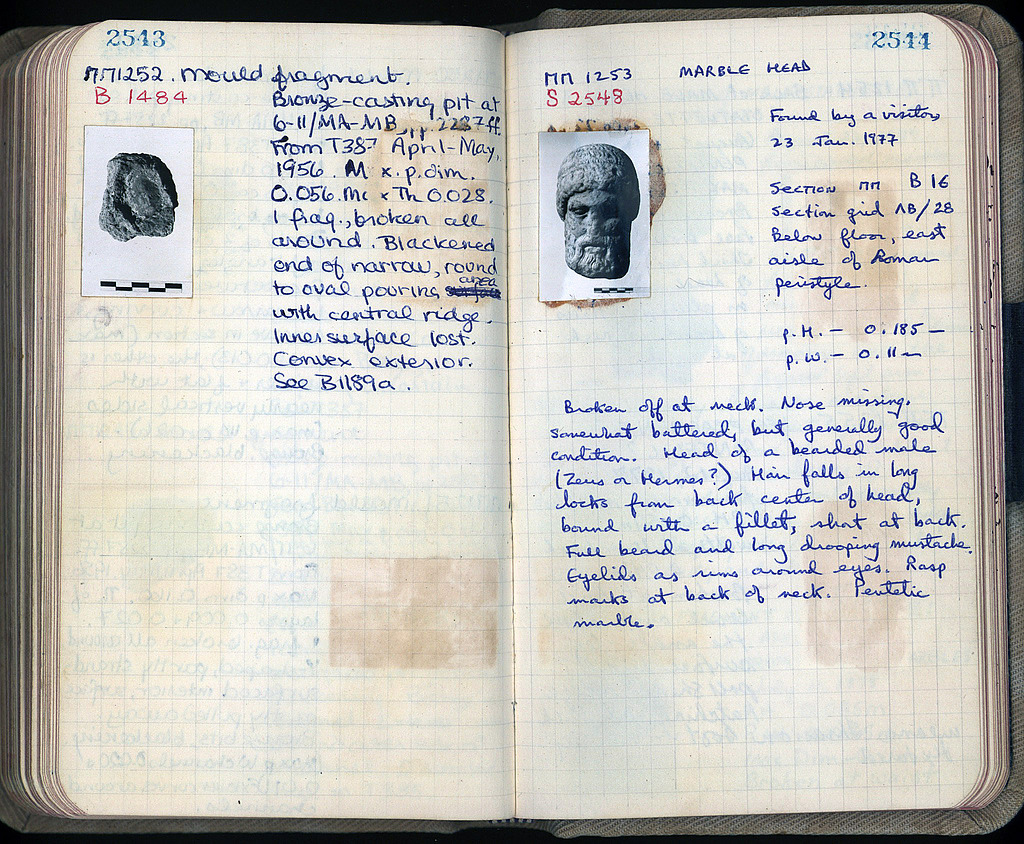 2543
MM1252. Mould fragment.
B 1484
Bronze-casting pit at
6-11/MA-MB, pp. 2287ff.
From T387 April-May,
1956. M x. p. dim.
0.056. Mc x Th 0.028.
1 frag., broken all
around. Blackened
end of narrow, round
to oval pouring area
with central ridge.
Inner surface lost.
Convex exterior.
See B1189a.
2544
MM 1253 MARBLE HEAD
S 2548
Found by a visitor
23 Jan. 1977
Section MM B 16
Section grid ΛB/28
Below floor, east
aisle of Roman
peristyle.
p.H. — 0.185 —
p.W. — 0.11 m
Broken off at neck. Nose missing.
somewhat battered, but generally good
condition. Head of a bearded male
(Zeus or Hermes?) Hair falls in long
locks from back center of head,
bound with a fillet, short at back.
Full beard and long drooping mustache.
Eyelids as rims around eyes. Rasp
marks at back of neck. Pentelic
marble.